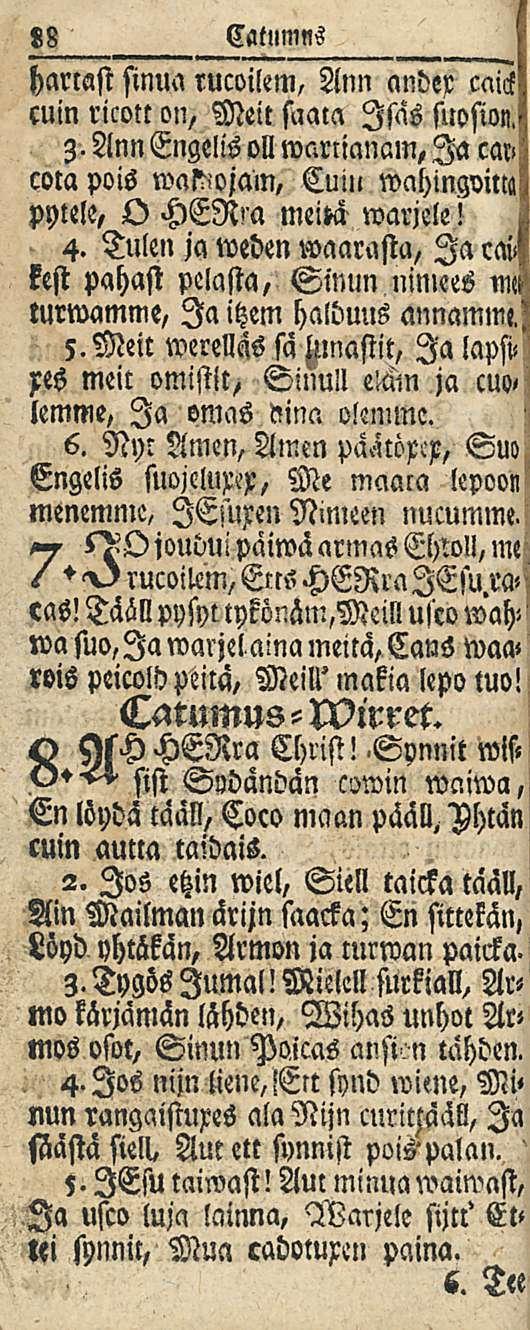 88 Catumus
hartast sinua rucoilem, Ann andex caick
cuin ricott on, Meit saata Isäs suosion.
3. Ann Engelis oll wartianam, Ja car-
cota pois wainojam, Cuin wahingoitta
pytele, O HERra meitä warjele!
4. Tulen ja weden waarasta, Ja cai-
kest pahast pelasta, Sinun nimees me
turwamme, Ja itzem halduus annamme.
5. Meit werelläs sä lunastit, Ja lapsi-
xes meit omistit, Sinull eläm ja cuo-
lemme, Ja omas aina olemme.
6. Nyt Amen, Amen päätöxex, Suo
Engelis suojeluxex, Me maata lepoon
menemme, JEsuxen Nimeen nucumme.
7. JO joudui päiwä armas Ehtoll, me
rucoilem, Etts HERra JEsu, ra-
cas! Tääll pysyt tykönäm, Meill usco wah-
wa suo, Ja warjel aina meitä, Cans waa-
rois peicold peitä, Meill' makia lepo tuo!
Catumus-Wirret.
8. AH HERra Christ! Synnit wis-
sist Sydändän cowin waiwa,
En löydä tääll, Coco maan pääll, Yhtän
cuin autta taidais.
2. Jos etzin wiel, Siell taicka tääll,
Ain Mailman ärijn saacka; En sittekän,
Löyd yhtäkän, Armon ja turwan paicka.
3. Tygös Jumal! Mielell surkiall, Ar-
mo kärjämän lähden, Wihas unhot Ar-
mos osot, Sinun Poicas ansion tähden.
4. Jos nijn liene, Ett synd wiene, Mi-
nun rangaistuxes ala Nijn curit tääll, Ja
säästä siell, Aut ett synnist pois palan.
5. JEsu taiwast! Aut minua waiwast,
Ja usco luja lainna, Warjele sijtt' Et-
tei synnit, Mua cadotuxen paina.
6. Tee